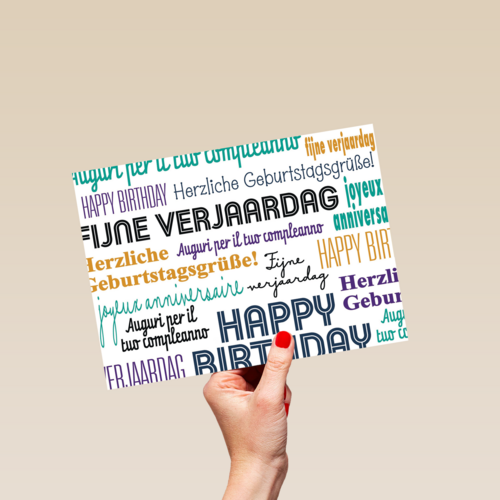 Auguri per il tuo compleanno
fijne verjaardag
HAPPY BIRTHDAY
Herzliche Geburtstagsgrüße!
FIJNE VERJAARDAG
joyeux
anniversa
Herzliche
Geburtstagsgrüße!
Auguri per il tuo compleanno
HAPPY BIRT
joyeux anniversaire
Fijne
verjaardag
Herzli
Gebur
Auguri per il
tuo compleanno
HAPPY
BIRTHDAY
Augu
tuo c
VERJAARDAG